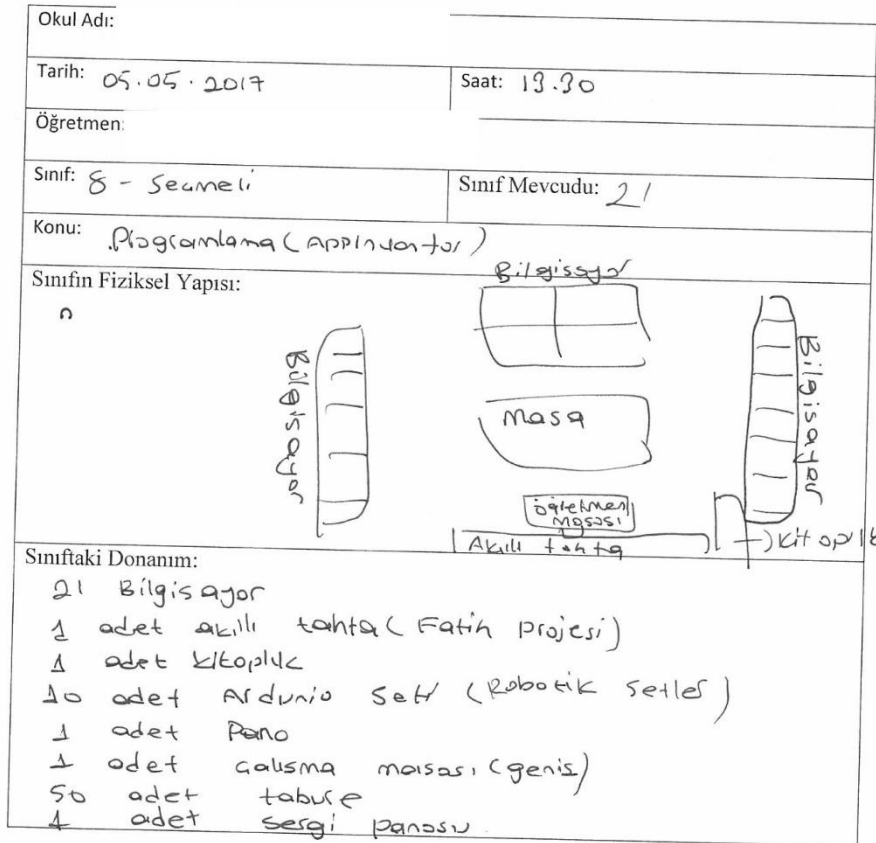 Okul Adı:
Tarih: 05.05.2017
Saat: 13.30
Öğretmen:
Sınıf: 8 - Seçmeli
Sınıf Mevcudu: 21
Konu: Programlama (Appinventor)
Sınıfın Fiziksel Yapısı:
Bilgisayar
Bilgisayar
Bilgisayar
Masa
öğretmen
masası
Akıllı tahta
kitaplık
Sınıftaki Donanım:
21 Bilgisayar
1 adet akıllı tahta (Fatih projesi)
1 adet kitaplık
10 adet Ardunio Seti (Robotik Setler)
1 adet Pano
1 adet çalışma masası (geniş)
50 adet tabure
1 adet sergi panosu